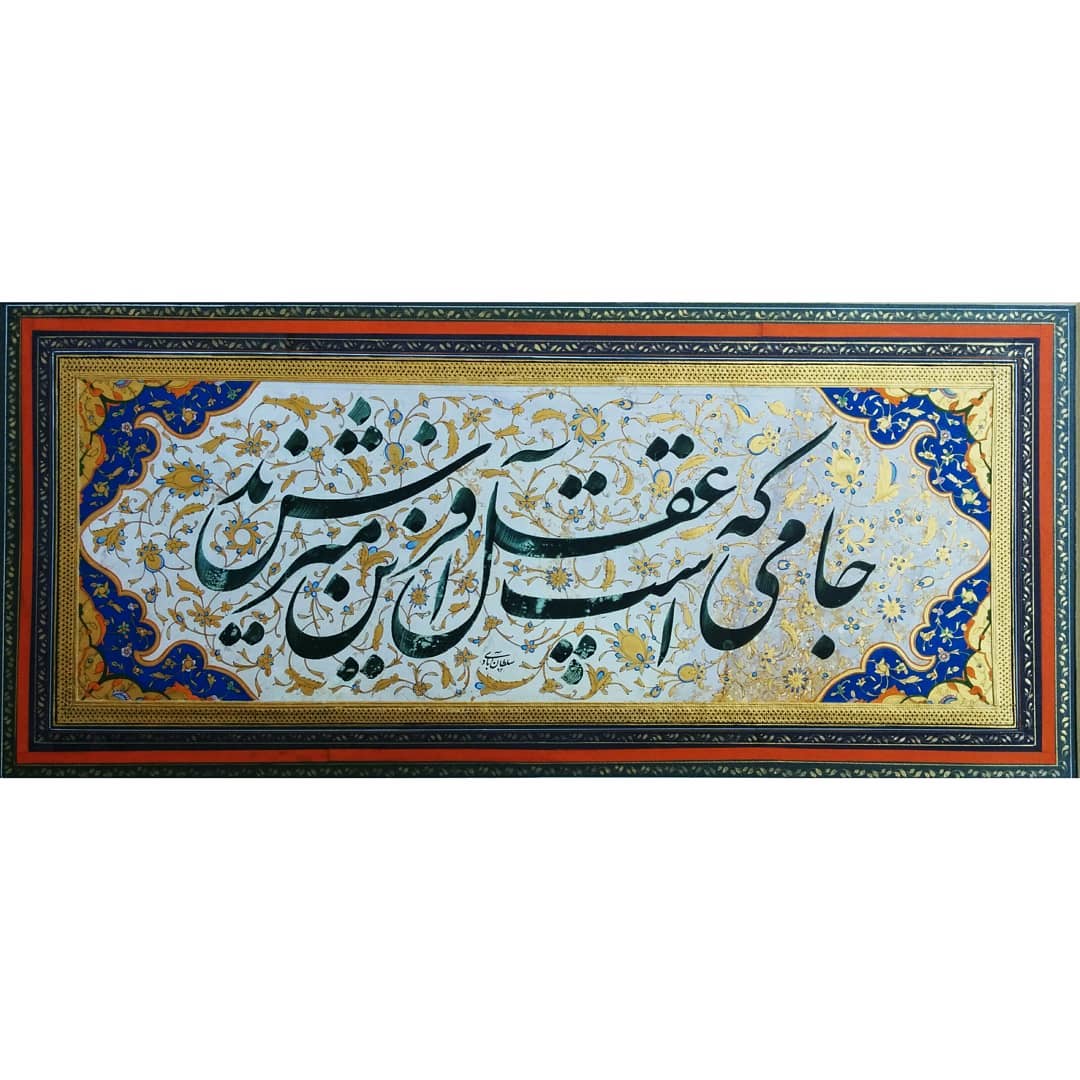 جامی است که عقل آفرین میزندش
سلطان آبادی